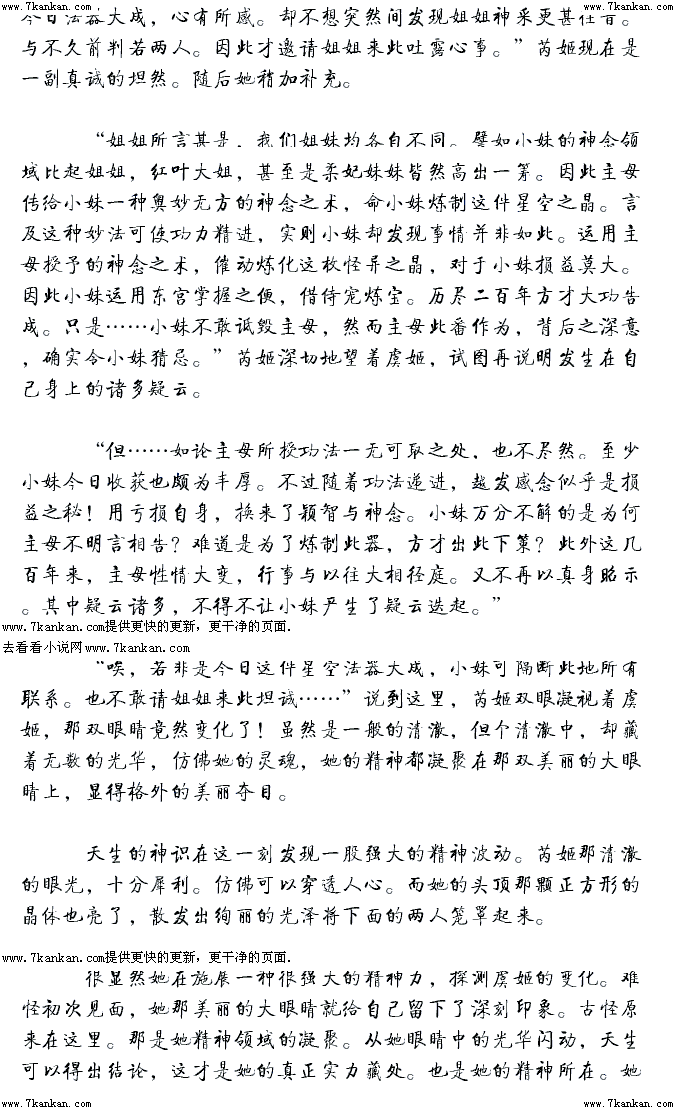 www.7kankan.com www.7kankan.com
今日法器大成，心有所感。却不想突然间发现姐姐神采更甚往昔。
与不久前判若两人。因此才邀请姐姐来此吐露心事。”芮姬现在是
一副真诚的坦然。随后她稍加补充。
“姐姐所言甚是，我们姐妹均各自不同。譬如小妹的神念领
域比起姐姐，红叶大姐，甚至是柔妃妹妹皆然高出一筹。因此主母
传给小妹一种奥妙无方的神念之术，命小妹炼制这件星空之晶。言
及这种妙法可使功力精进，实则小妹却发现事情并非如此。运用主
母授予的神念之术，催动炼化这枚怪异之晶，对于小妹损益莫大。
因此小妹运用东宫掌握之便，借侍宠炼宝。历尽二百年方才大功告
成。只是……小妹不敢诋毁主母，然而主母此番作为，背后之深意
，确实令小妹猜忌。”芮姬深切地望着虞姬，试图再说明发生在自
己身上的诸多疑云。
“但……如论主母所授功法一无可取之处，也不尽然。至少
小妹今日收获也颇为丰厚。不过随着功法递进，越发感念似乎是损
益之秘！用亏损自身，换来了颖智与神念。小妹万分不解的是为何
主母不明言相告？难道是为了炼制此器，方才出此下策？此外这几
百年来，主母性情大变，行事与以往大相径庭。又不再以真身昭示
。其中疑云诸多，不得不让小妹产生了疑云迭起。”
www.7kankan.com提供更快的更新，更干净的页面.
去看看小说网www.7kankan.com
“唉，若非是今日这件星空法器大成，小妹可隔断此地所有
联系。也不敢请姐姐来此坦诚……”说到这里，芮姬双眼凝视着虞
姬，那双眼睛竟然变化了！虽然是一般的清澈，但个清澈中，却藏
着无数的光华，仿佛她的灵魂，她的精神都凝聚在那双美丽的大眼
睛上，显得格外的美丽夺目。
天生的神识在这一刻发现一股强大的精神波动。芮姬那清澈
的眼光，十分犀利。仿佛可以穿透人心。而她的头顶那颗正方形的
晶体也亮了，散发出绚丽的光泽将下面的两人笼罩起来。
www.7kankan.com提供更快的更新，更干净的页面.
很显然她在施展一种很强大的精神力，探测虞姬的变化。难
怪初次见面，她那美丽的大眼睛就给自己留下了深刻印象。古怪原
来在这里。那是她精神领域的凝聚。从她眼睛中的光华闪动，天生
可以得出结论，这才是她的真正实力藏处。也是她的精神所在。她
www.7kankan.com www.7kankan.com